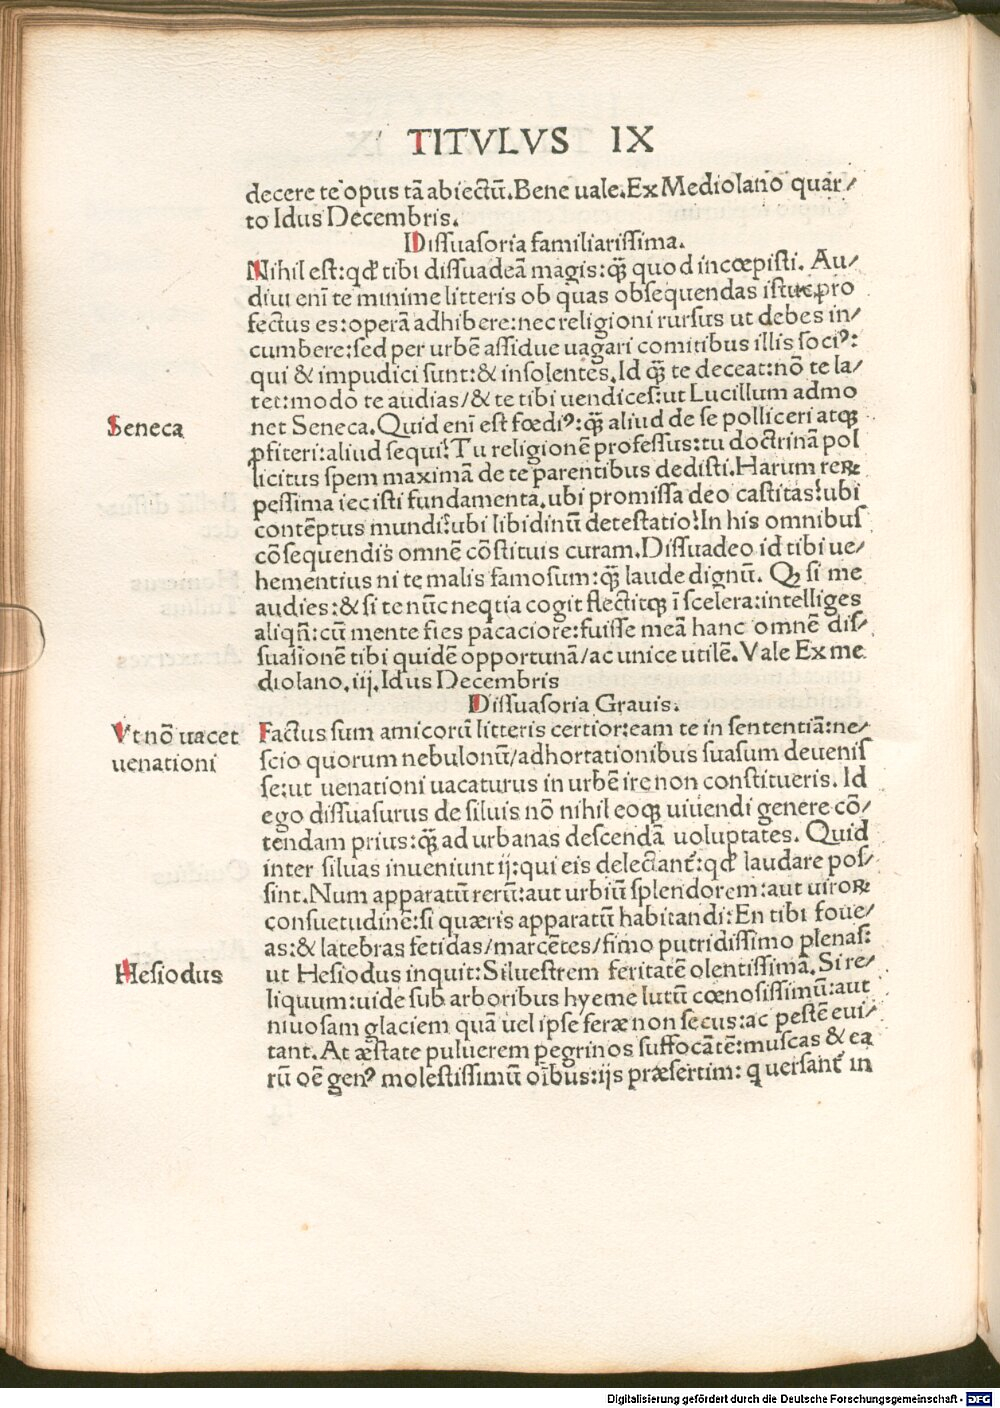 TITVLVS IX
decere te opus tā abiectū. Bene uale. Ex Mediolano quar/
to Idus Decembris.
Dissuasoria familiarissima.
Nihil est: qđ tibi dissuadeā magis: q̄ꝫ quod incœpisti. Au/
diui eni te minime litteris ob quas obsequendas istuc ꝓ
fectus es: operā adhibere: nec religioni rursus ut debes in/
cumbere: sed per urbē assidue uagari comitibus illis sociꝰ:
qui & impudici sunt: & insolentes. Id q̄ꝫ te deceat: nō te la/
tet: modo te audias/ & te tibi uendices: ut Lucillum admo
Seneca
net Seneca. Quid eni est fœdiꝰ: q̄ꝫ aliud de se polliceri atqꝫ
ꝓfiteri: aliud sequi? Tu religionē professus: tu doctrinā pol
licitus spem maximā de te parentibus dedisti. Harum reꝝ
pessima iecisti fundamenta. ubi promissa deo castitas? ubi
contēptus mundi? ubi libidinū detestatio? In his omnibus
cōsequendis omnē cōstituis curam. Dissuadeo id tibi ue/
hementius ni te malis famosum: q̄ꝫ laude dignū. Qꝫ si me
audies: & si te nūc neqtia cogit flectitqꝫ ī scelera: intelliges
aliqñ: cū mente fies pacaciore: fuisse meā hanc omnē dis/
suasionē tibi quidē opportunā/ ac unice utilē. Vale Ex me
diolano. iij. Idus Decembris
Dissuasoria Grauis.
Vt nō uacet
uenationi
Factus sum amicorū litteris certior: eam te in sententiā: ne/
scio quorum nebulonū/ adhortationibus suasum deuenis
se: ut uenationi uacaturus in urbē ire non constitueris. Id
ego dissuasurus de siluis nō nihil eoqꝫ uiuendi genere cō/
tendam prius: q̄ꝫ ad urbanas descendā uoluptates. Quid
inter siluas inueniunt ij: qui eis delectant̄: qđ laudare pos/
sint. Num apparatū rerū: aut urbiū splendorem: aut uiroꝝ
consuetudinē: si quæris apparatū habitandi: En tibi foue/
as: & latebras fetidas/ marcētes/ fimo putridissimo plenas:
Hesiodus
ut Hesiodus inquit: Siluestrem feritatē olentissimā. Si re/
liquum: uide sub arboribus hyeme lutū cœnosissimū: aut
niuosam glaciem quā uel ipse feræ non secus: ac pestē eui/
tant. At æstate puluerem pegrinos suffocātē: muscas & ea
rū oē genꝰ molestissimū oībus: iis præsertim: q uersant̄ in
Digitalisierung gefördert durch die Deutsche Forschungsgemeinschaft - DFG